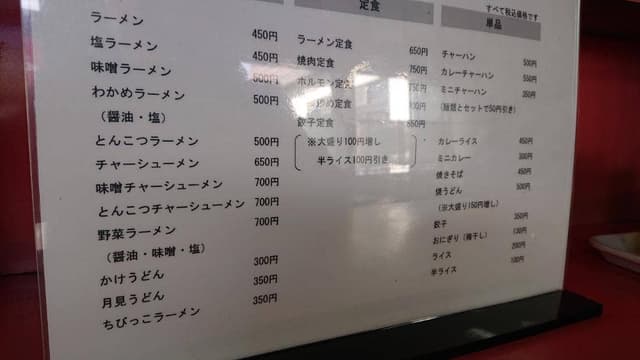 ラーメン 450円
塩ラーメン 450円
味噌ラーメン 500円
わかめラーメン 500円
（醤油・塩）
とんこつラーメン 500円
チャーシューメン 650円
味噌チャーシューメン 700円
とんこつチャーシューメン 700円
野菜ラーメン 700円
（醤油・味噌・塩）
かけうどん 300円
月見うどん 350円
ちびっこラーメン 350円
定食
ラーメン定食 650円
焼肉定食 750円
ホルモン定食 750円
炒め定食
餃子定食 650円
※大盛り100円増し
半ライス100円引き
すべて税込価格です
単品
チャーハン 500円
カレーチャーハン 550円
ミニチャーハン 350円
（麺類とセットで50円引き）
カレーライス 450円
ミニカレー 300円
焼きそば 450円
焼うどん 500円
（※大盛り150円増し）
餃子 350円
おにぎり（梅干し） 130円
ライス 200円
半ライス 100円